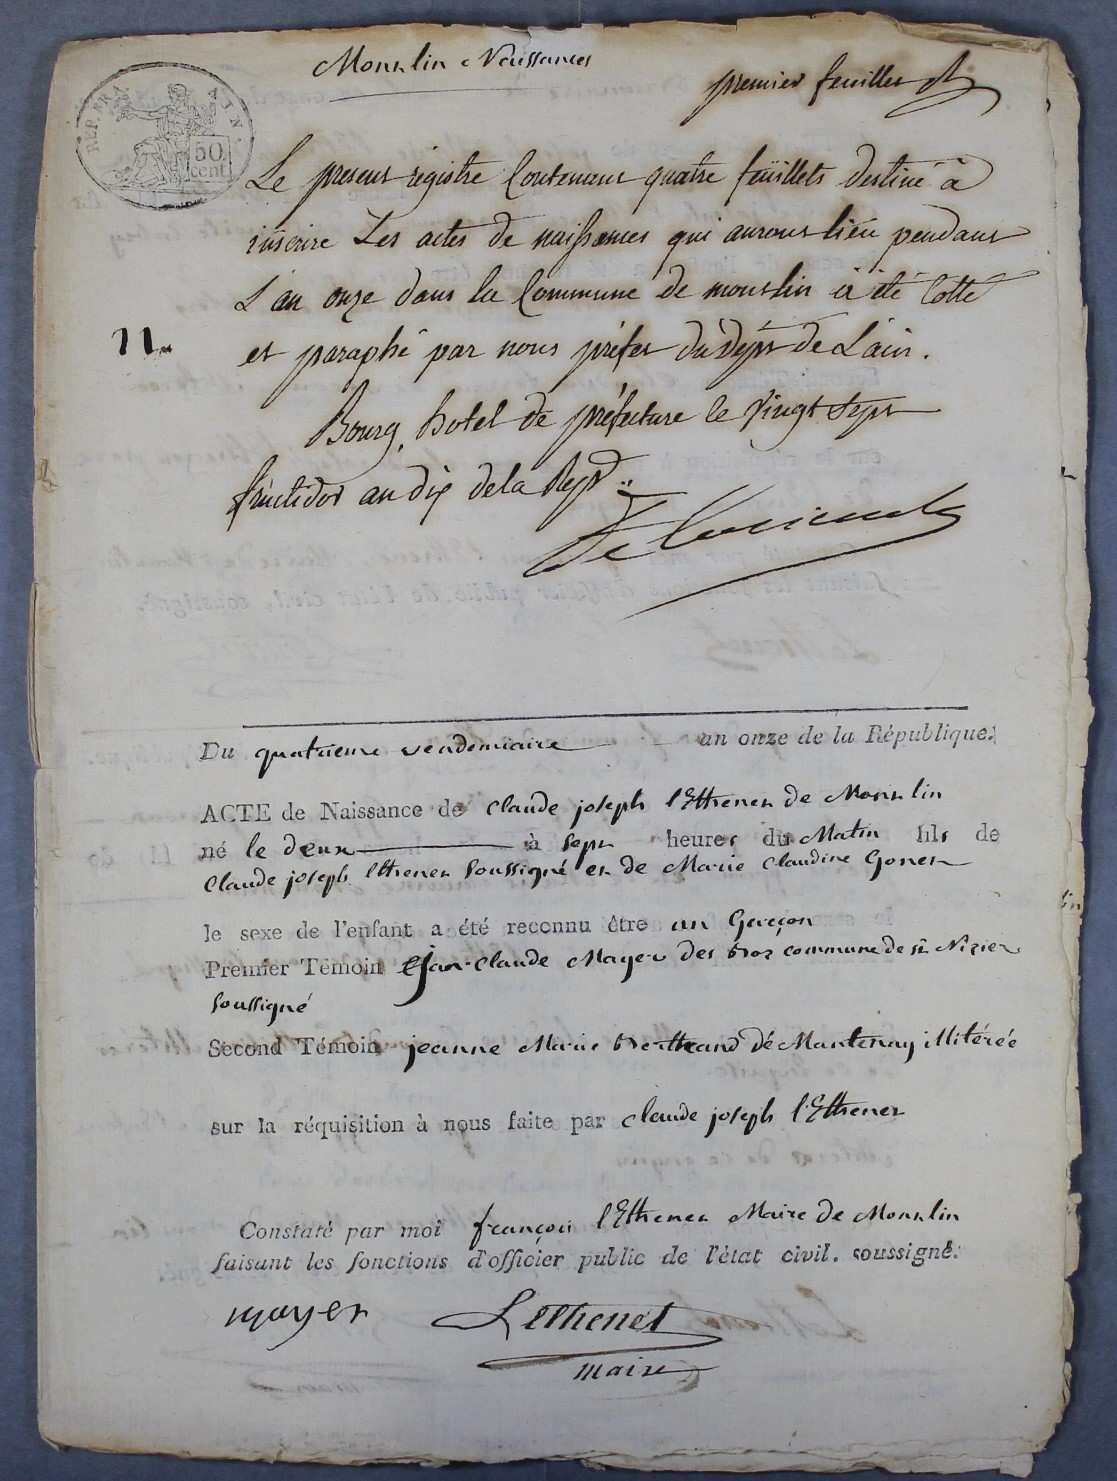 Mons lin Naissances
premier feuillet
REP. FRA. AIN.
50
cent
Le present régistre Contenant quatre feuillets destiné à
inscrire Les actes de naissances qui auront lieu pendant
L'an onze dans la Commune de mons lin à été Cotté
11
et paraphé par nous préfet du dépt de L'ain.
Bourg, hotel de préfecture le vingt sept
fructidor an dix de la Rep.
Du quatrieme vendemiaire an onze de la République.
ACTE de Naissance de claude joseph l'Ethenet de Monslin
né le deux à sept heures du Matin fils de
Claude joseph l'Ethenet soussigné et de Marie Claudine Gonet
le sexe de l'enfant a été reconnu être un Garçon
Premier Témoin jean-Claude Mayer des bois commune de st Nizier
soussigné
Second Témoin jeanne Marie bertrand dé Mantenay illitérée
sur la réquisition à nous faite par claude joseph l'Ethenet
Constaté par moi françois l'Ethenet Maire de Monslin
faisant les fonctions d'officier public de l'état civil. soussigné.
mayer Lethenet
maire